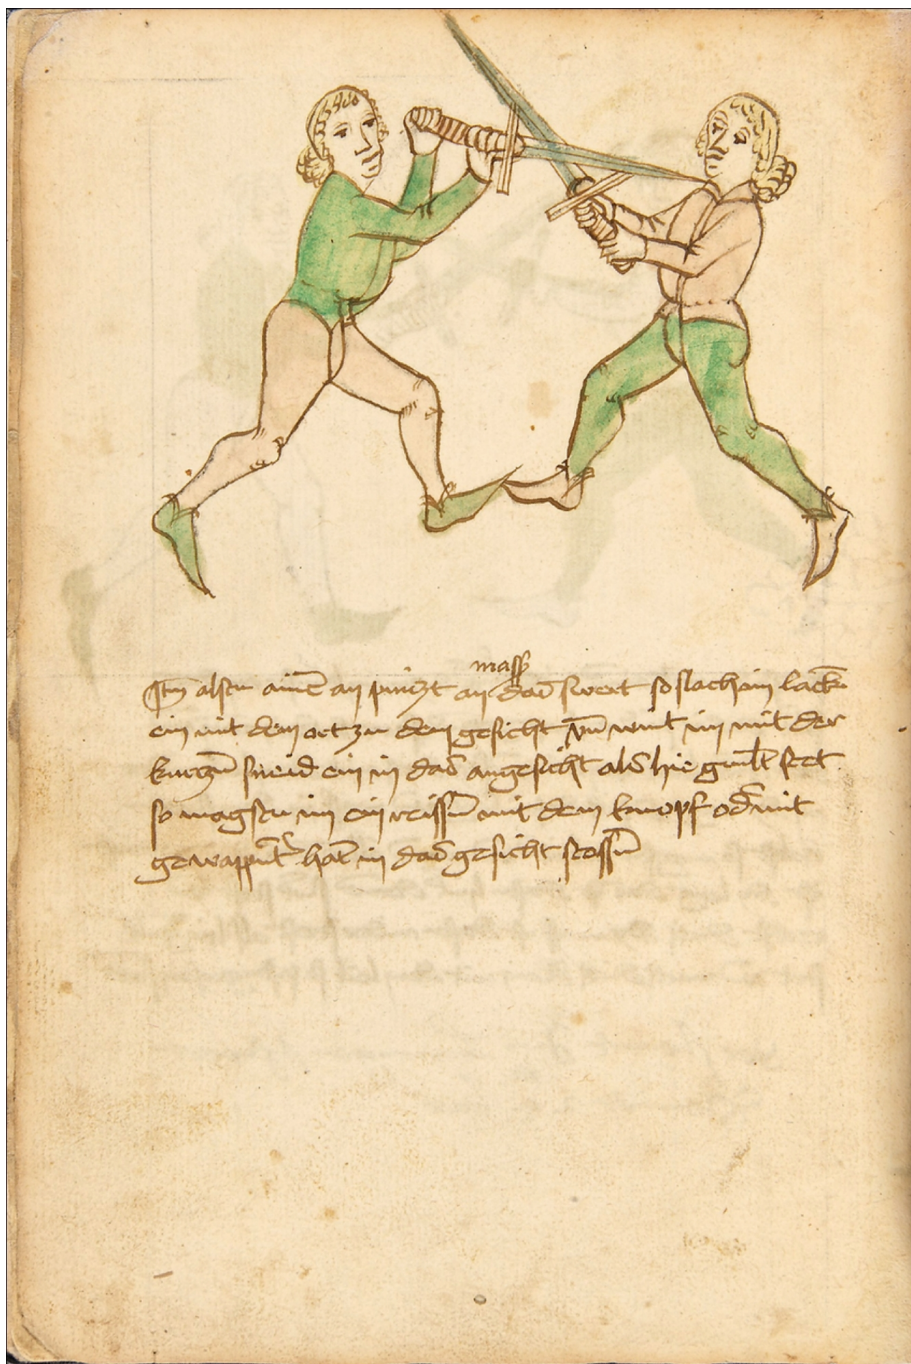 mass
Itm alstu ainē an pinczt an das swert so slach im lāck
ein mit dem ort zu dem gesicht vn̄ wint im mit der
kurczn̄ sneid ein in das angesicht als hie gmlt stet
so magstu im ein reissn̄ mit dem knopf od' mit
gewappnt' hāt in das gesicht stossn̄